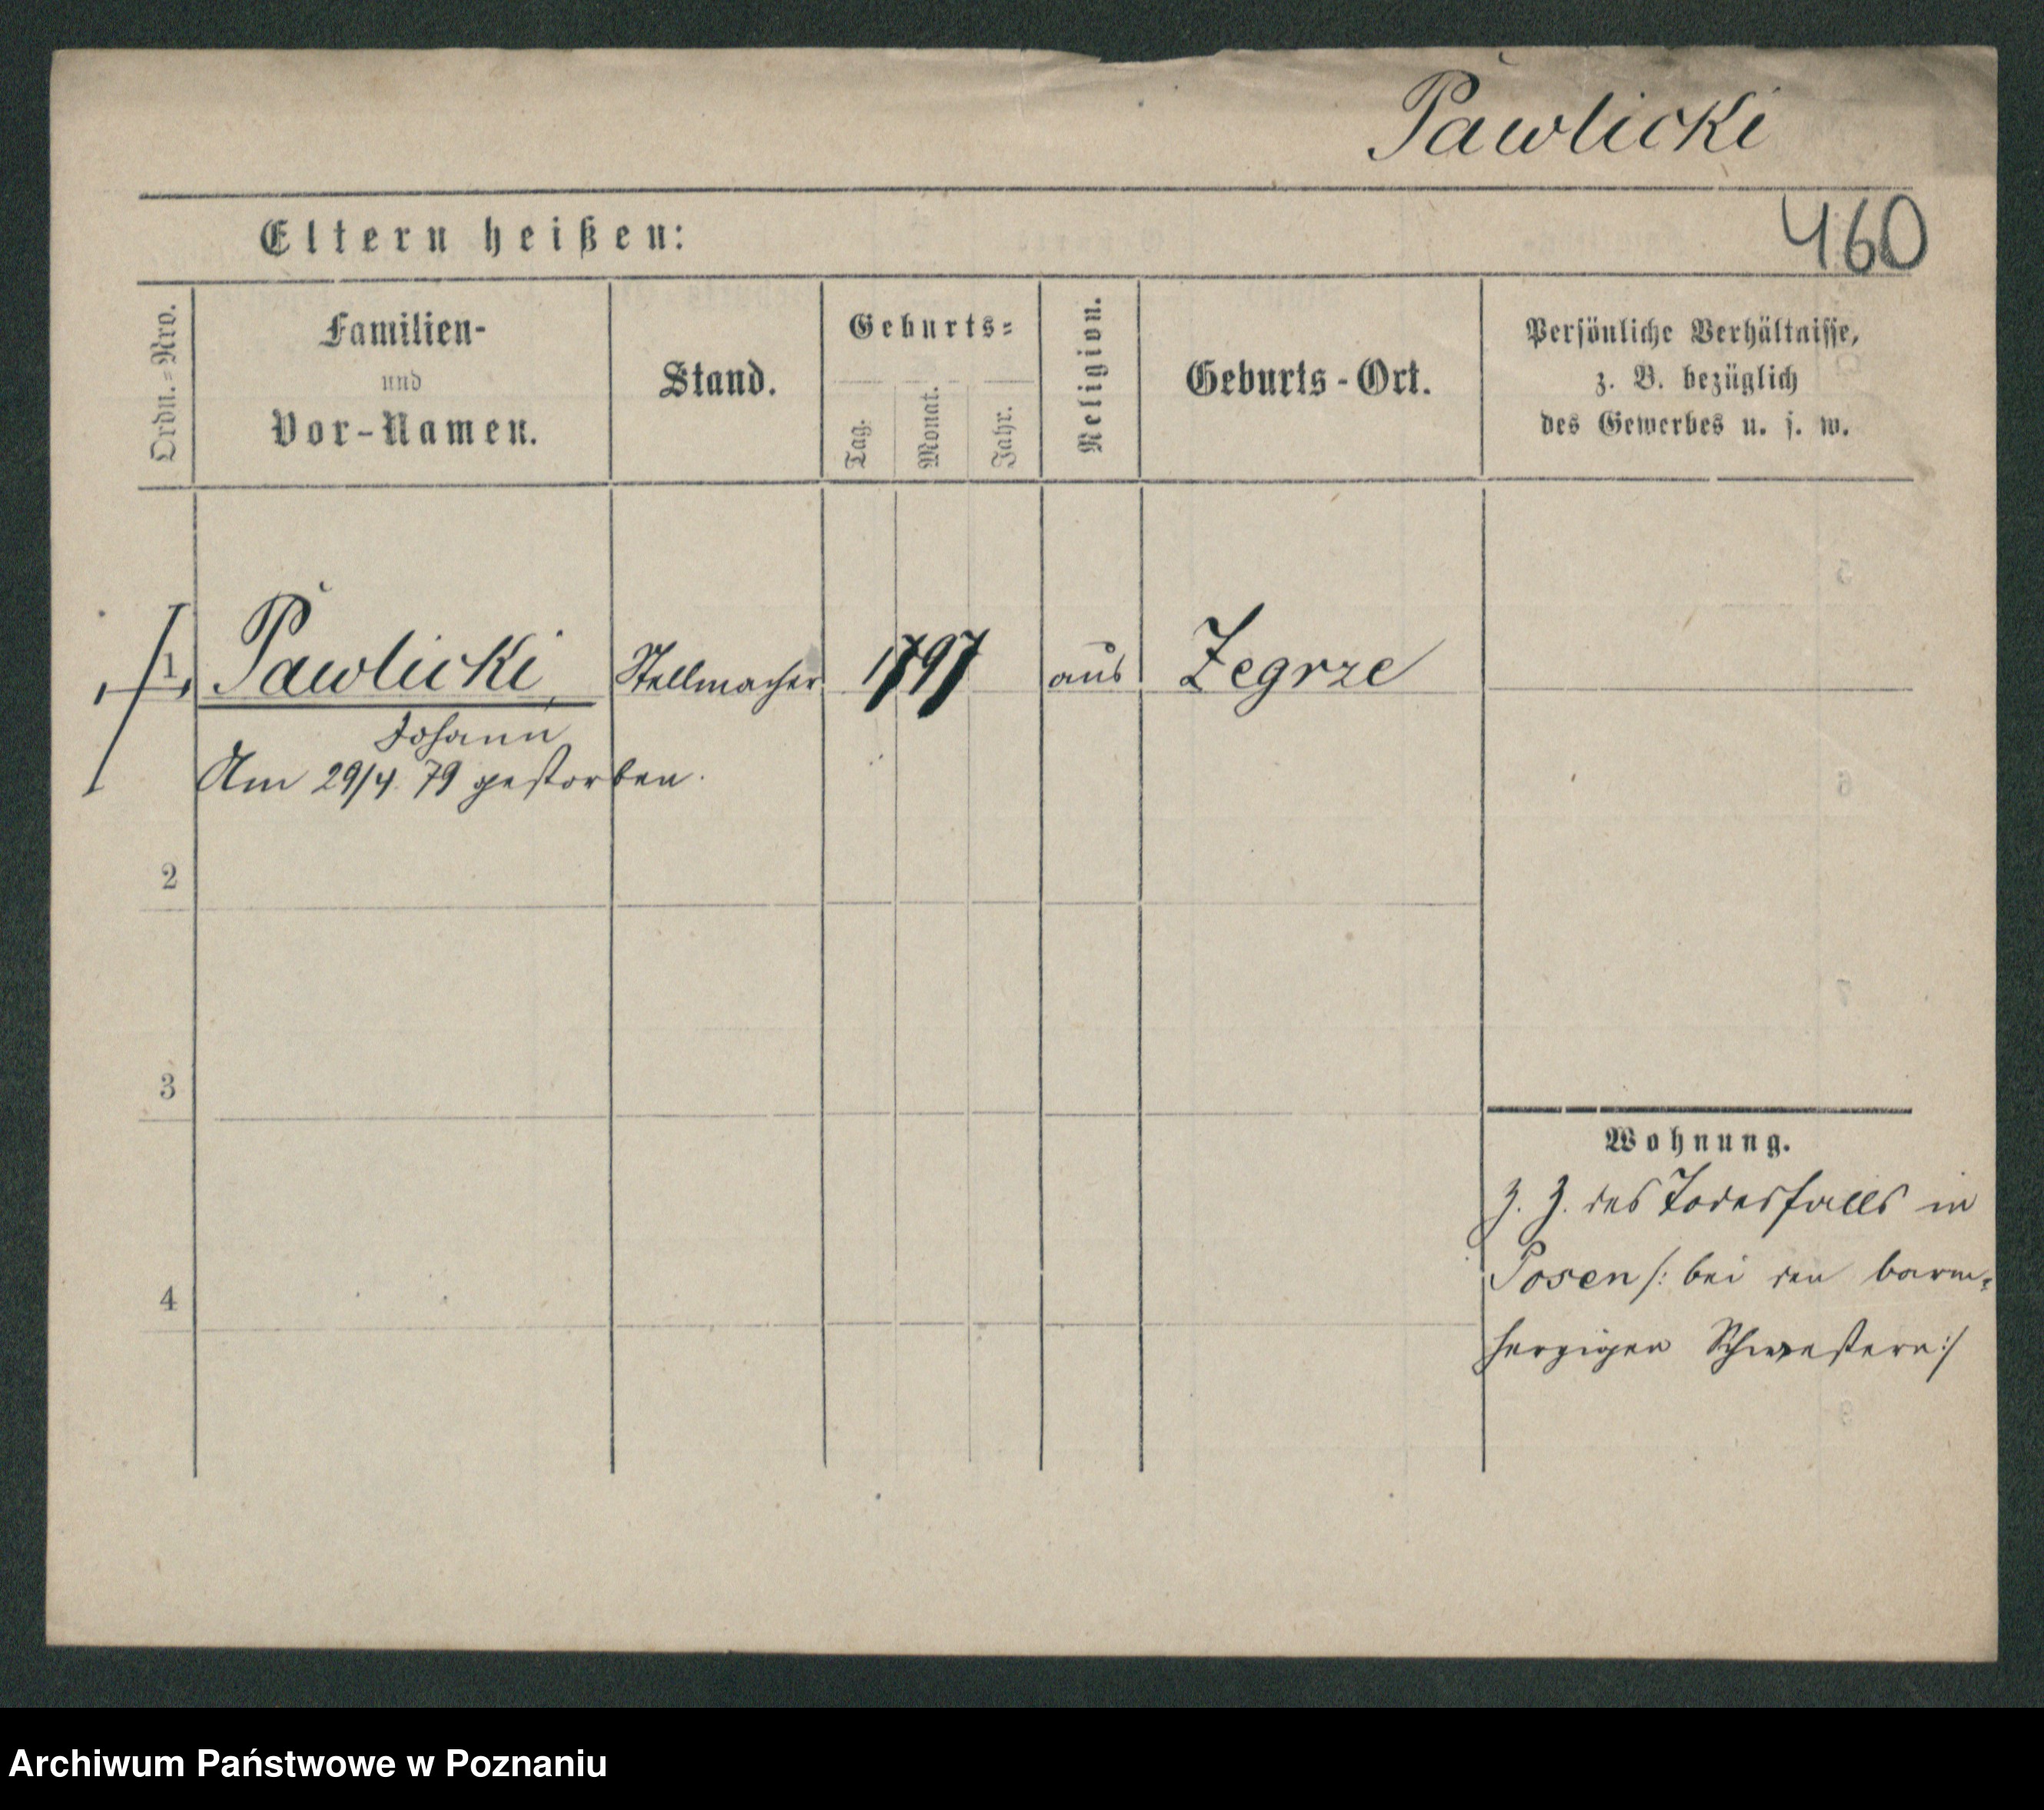 Pawlicki
460
Eltern heißen:
Ordn.=Nro.
Familien-
und
Vor-Namen.
Stand.
Geburts=
Tag.
Monat.
Jahr.
Religion.
Geburts-Ort.
Persönliche Verhältnisse,
z. B. bezüglich
des Gewerbes u. s. w.
1 Pawlicki Stellmacher 1797 aus Zegrze
Johann
Am 29/4. 79 gestorben.
2
3
4
Wohnung.
z. Z. des Todesfalls in
Posen /: bei den barm=
herzigen Schwestern :/
Archiwum Państwowe w Poznaniu